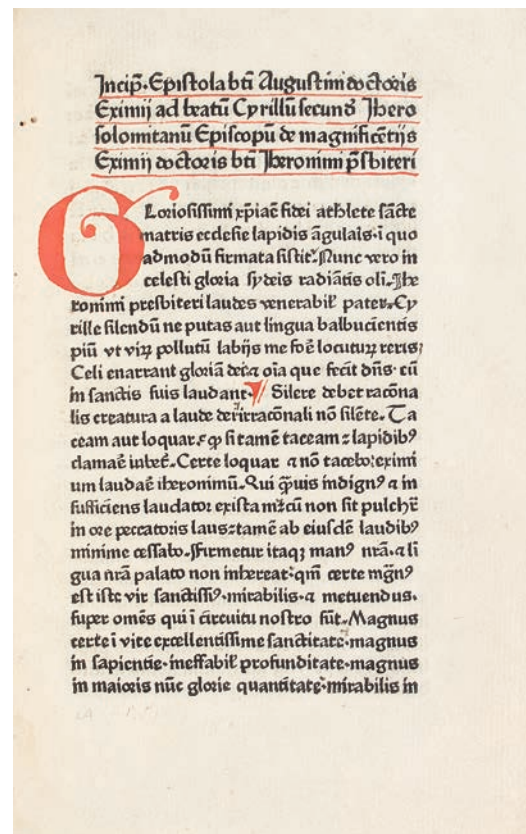 Incip̃. Epistola bt̃i Augustini doctoris
Eximij ad beatũ Cyrillũ secundũ Jhero
solomitanũ Episcopũ de magnificẽtijs
Eximij doctoris bt̃i Jheronimi p̃sbiteri
Gloriosissimi xp̃iãe fidei athlete sãcte
matris ecclesie lapidis ãgulais. ĩ quo
admodũ firmata sistit᷒. Nunc vero in
celesti gloria syderis radiãtis oli. Jhe
ronimi presbiteri laudes venerabil᷒ pater. Cy
rille silendũ ne putas aut lingua balbucientis
piũ vt virꝫ pollutũ labijs me foẽ locuturꝫ reris:
Celi enarrant gloriã dei. ⁊ oĩa que fecit dñs. cũ
in sanctis suis laudant. Silere debet racõna
lis creatura a laude dei irracõnali nõ silẽte. Ta
ceam aut loquar. si tamẽ taceam: lapidibꝰ
clamãe iubet᷒. Certe loquar ⁊ nõ tacebo: eximi
um laudãe iheronimũ. Qui q̃uis indignꝰ ⁊ in
sufficiens laudator exista m̃: cũ non sit pulchr᷒
in ore peccatoris laus: tamẽ ab eiusdẽ laudibꝰ
minime cessabo. ffirmetur itaqꝫ manꝰ nr̃a. ⁊ li
gua nr̃a palato non inhereat: qm̃ certe mg̃nꝰ
est iste vir sanctissiꝰ. mirabilis. ⁊ metuendus.
super omẽs qui ĩ circuitu nostro sũt. Magnus
certe ĩ vite excellentissime sanctitate. magnus
in sapientie. ineffabil᷒ profunditate. magnus
in maioris nũc glorie quantitate. mirabilis in